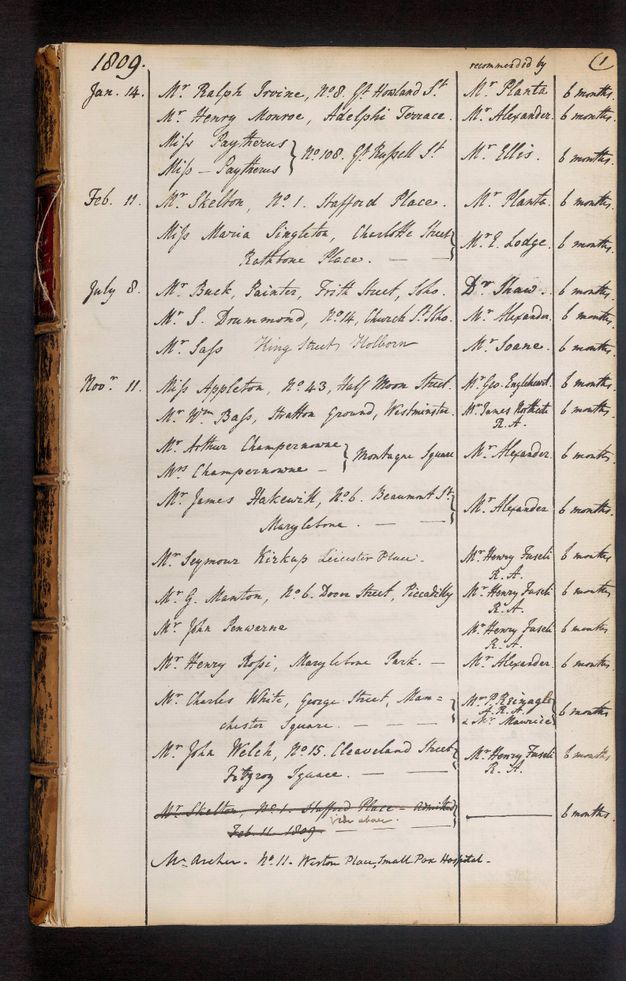 1809. recommended by (1)
Jan. 14. Mr Ralph Irvine, No 8. Gt Howland St Mr Planta 6 months.
Mr Henry Monroe, Adelphi Terrace. Mr Alexander. 6 months.
Miss Paytherus } No 108. Gt Russell St Mr Ellis. 6 months.
Miss — Paytherus
Feb. 11. Mr Skelton, No 1. Stafford Place. Mr Planta. 6 months.
Miss Maria Singleton, Charlotte Street } Mr E. Lodge. 6 months.
Rathbone Place. — —
July 8. Mr Buck, Painter, Frith Street, Soho. Dr Shaw. 6 months.
Mr S. Drummond, No 14, Church St Soho. Mr Alexander. 6 months.
Mr Sass King Street Holborn Mr Soane. 6 months.
Novr 11. Miss Appleton, No 43, Half Moon Street. Mr Geo. Engleheart. 6 months.
Mr Wm Bass, Stratton Ground, Westminster. Mr James Northcote 6 months.
R.A.
Mr Arthur Champernowne } Montague Square Mr Alexander. 6 months.
Mrs Champernowne —
Mr James Hakewill, No 6. Beaumont St } Mr Alexander 6 months.
Marylebone. — —
Mr Seymour Kirkup Leicester Place. Mr Henry Fuseli 6 months.
R.A.
Mr G. Manton, No 6. Dover Street, Piccadilly Mr Henry Fuseli 6 months.
R.A.
Mr John Penwarne Mr Henry Fuseli 6 months.
R.A.
Mr Henry Rossi, Marylebone Park. — Mr Alexander. 6 months.
Mr Charles White, George Street, Man= } Mr P. Reinagle 6 months.
A.R.A.
chester Square. — — — & Mr Maurice
Mr John Welch, No 15. Cleaveland Street } Mr Henry Fuseli 6 months.
Fitzroy Square. — — R.A.
Mr Skelton, No 1. Stafford Place – admitted } — 6 months.
Feb. 11. 1809. vide above. — — —
Mr Archer. No 11. Weston Place, Small Pox Hospital.